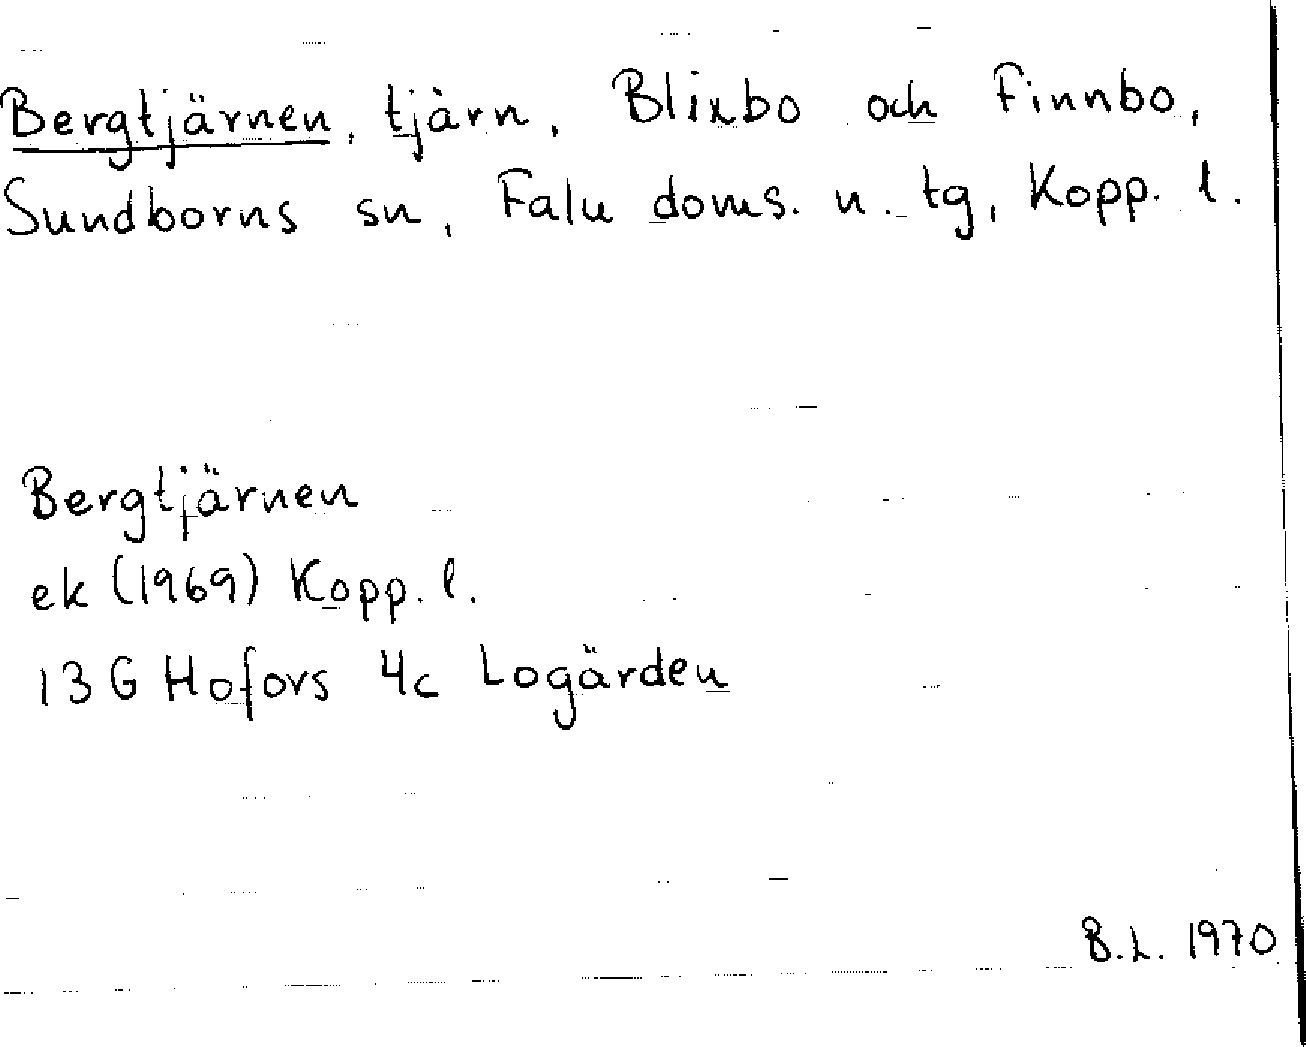 Bergtjärnen, tjärn, Blixbo och Finnbo,
Sundborns sn, Falu doms. n. tg, Kopp. l.
Bergtjärnen
ek (1969) Kopp. l.
13 G Hofors 4c Logärden
B.L. 1970